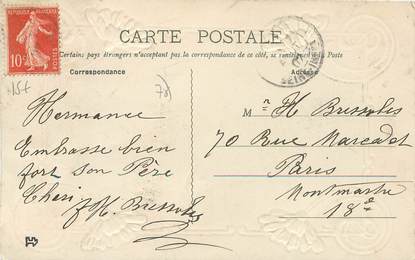 CARTE POSTALE
Certains pays étrangers n'acceptant pas la correspondance de ce côté, se renseigner à la Poste
Correspondance
Adresse
REPUBLIQUE FRANÇAISE
10c
POSTES
15f
78
Hermance
Embrasse bien
fort son Père
Chéri
H. Brissolès
Mr H Brissolès
70 Rue Marcadet
Paris
Montmartre
18e